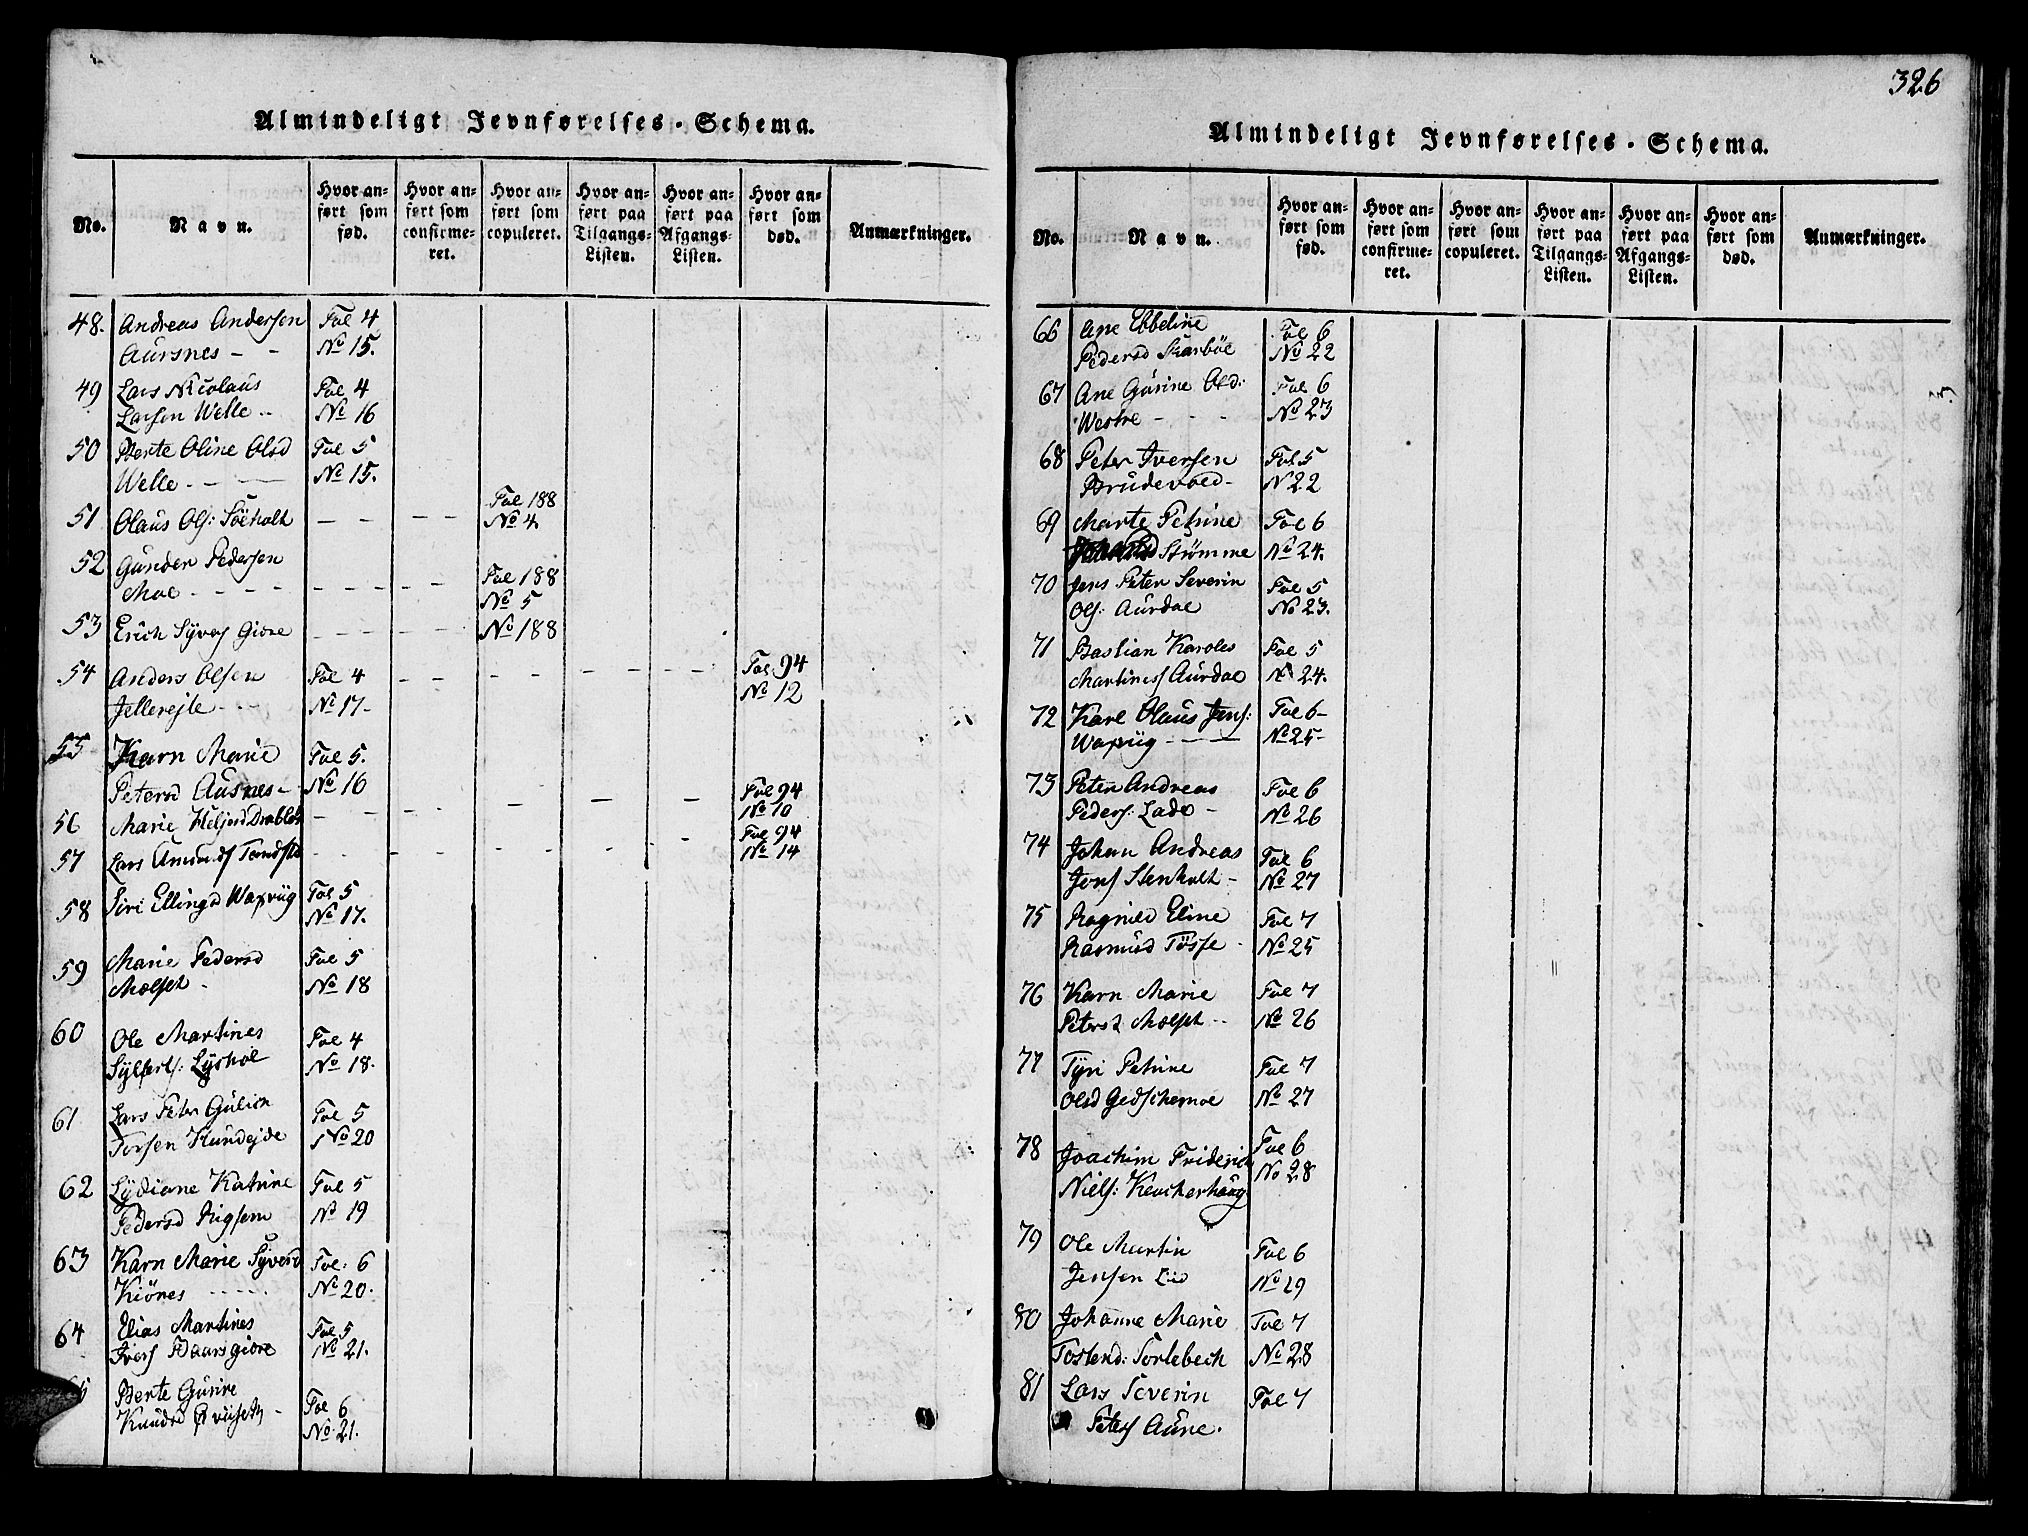 Almindeligt Jevnførelses-Schema.
No.
Navn.
Hvor an-
ført som
fød.
Hvor an-
ført som
confirme-
ret.
Hvor an-
ført som
copuleret.
Hvor an-
ført paa
Tilgangs-
Listen.
Hvor an-
ført paa
Afgangs-
Listen.
Hvor an-
ført som
død.
Anmærkninger.
48. Andreas Andersen Fol 4
Aursnes - - No 15.
49 Lars Nicolaus Fol 4
Larsen Welle - No 16
50 Berte Oline Olsd Fol 5
Welle - - - No 15.
51 Olaus Ols: Söeholt - - - - Fol 188
No 4
52 Gunder Pedersen
Moe - - - - Fol 188
No 5
53 Erich Syvers Giøre - - - No 188
54 Anders Olsen Fol 4 - - - - Fol 94
Jellerejte - - No 17- No 12
55 Karn Marie Fol 5.
Petersd Ausnes - No 16
56 Marie - - - - Fol 94
No 10
57 Lars - - - - Fol 94
No 14
58 Siri Ellingd Waxvüg Fol 5
No 17.
59 Marie Pedersd Fol 5
Molset - No 18
60 Ole Martines Fol 4
Lyshol No 18.
61 Lars Peter Gulich Fol 5
No 20
62 Lydiane Katrine Fol 5
Pedersd No 19
63 Karn Marie Syverd Fol: 6
Kiönes - - - No 20.
64 Elias Martines Fol 5
Ivers No 21.
Berte Gurine Fol 6
Knudsd No 21.
326
Almindeligt Jevnførelses-Schema.
No.
Navn.
Hvor an-
ført som
fød.
Hvor an-
ført som
confirme-
ret.
Hvor an-
ført som
copuleret.
Hvor an-
ført paa
Tilgangs-
Listen.
Hvor an-
ført paa
Afgangs-
Listen.
Hvor an-
ført som
død.
Anmærkninger.
66 Ane Ebbeline Fol 6
Pedersd Skarböe No 22
67 Ane Gurine Old: Fol 6
Westre - - - No 23
68 Peter Iversen Fol 5
Brudevold - N 22
69 Marte Petrine Fol 6
Strømme No 24.
70 Jens Peter Severin Fol 5
Ols: Aurdal No 23.
71 Bastian Karoles Fol 5
Martines Aurdal N 24.
72 Karl Olaus Jens: Fol 6-
Waxvüg - - - No 25-
73 Peter Andreas Fol 6
Peders: Lade - No 26
74 Johan Andreas Fol 6
Jons Stenholt - No 27
75 Ragnild Eline Fol 7
Rasmusd Tösse - No 25
76 Karn Marie Fol 7
Petersd Molset - No 26
77 Tyri Petrine Fol 7
Olsd Gedschemoe No 27
78 Joachim Friderich Fol 6
Niels: No 28
79 Ole Martin Fol 6
Jensen Lid No 29
80 Johanne Marie Fol 7
Tostend: Sorlebech No 28
81 Lars Severin Fol 7
Peters Aüne.